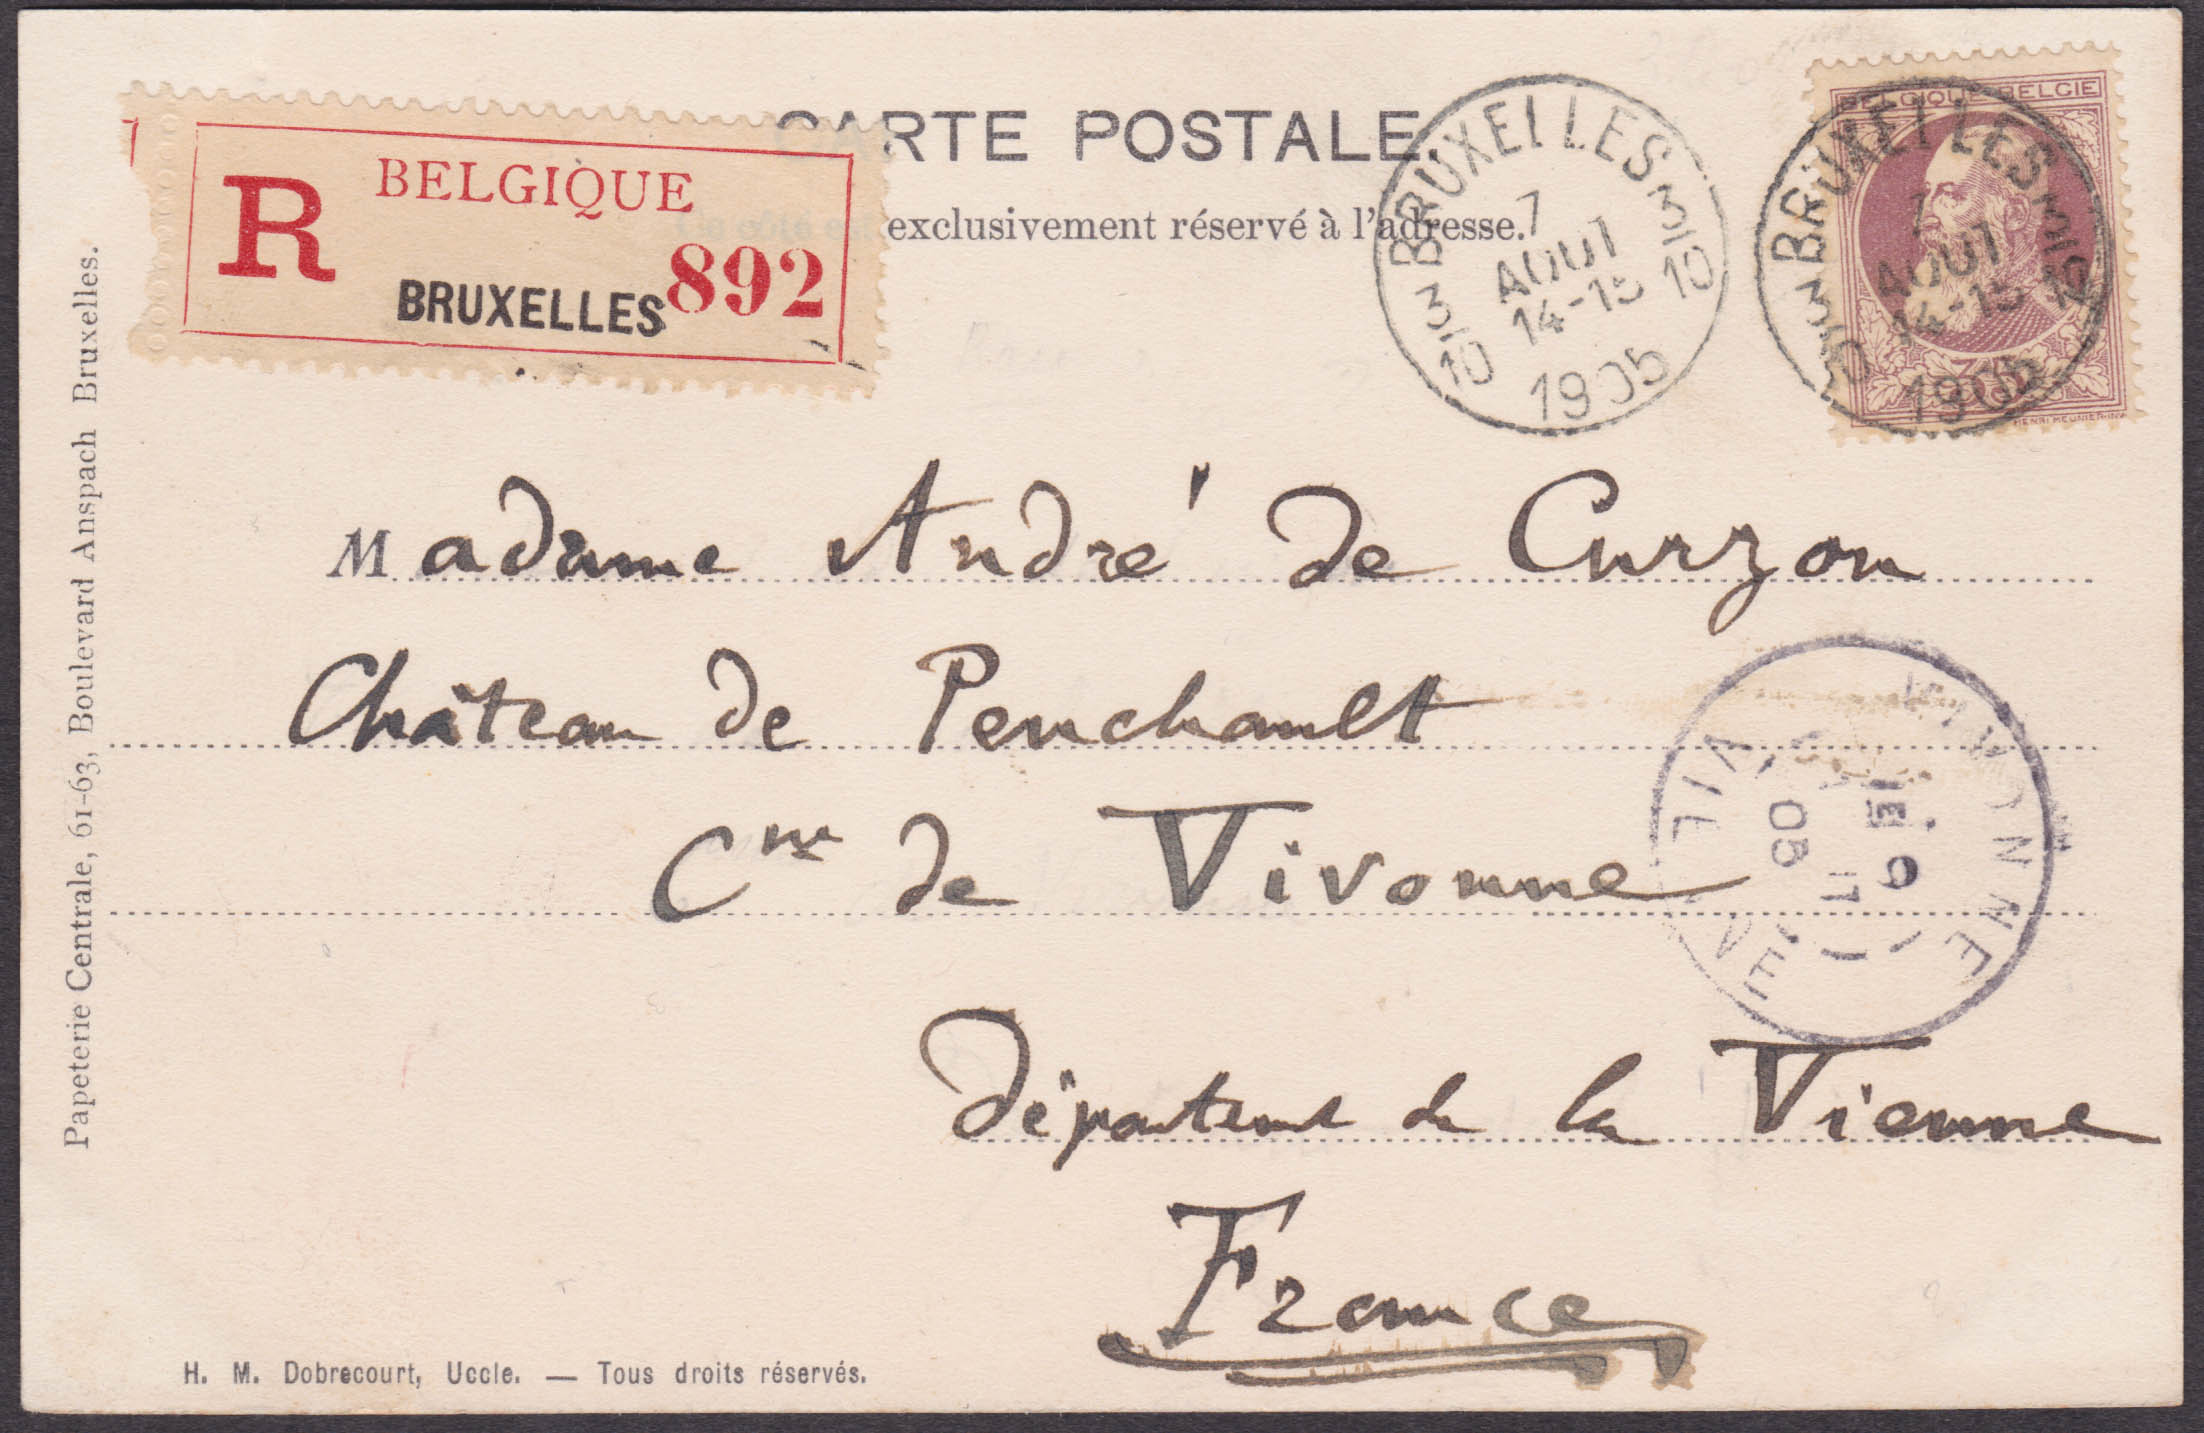 CARTE POSTALE
Ce côté est exclusivement réservé à l'adresse.
R BELGIQUE
BRUXELLES 892
BRUXELLES
7
AOUT
14-15
1905
BELGIQUE BELGIE
BRUXELLES
7
AOUT
14-15
1905
35
HENRI MEUNIER-INV
Madame André de Curzon
Château de Penchault
Cne de Vivonne
VIVONNE
VIENNE
9
05
Département de la Vienne
France
Papeterie Centrale, 61-63, Boulevard Anspach Bruxelles.
H. M. Dobrecourt, Uccle. — Tous droits réservés.